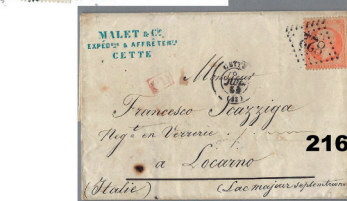 MALET & Cie
EXPÉDRS & AFFRÉTEURS
CETTE
CETTE
Monsieur
Francesco Scazziga
Negt en Verrerie
a Locarno
(Italie) (Lac majeur septentrional
216